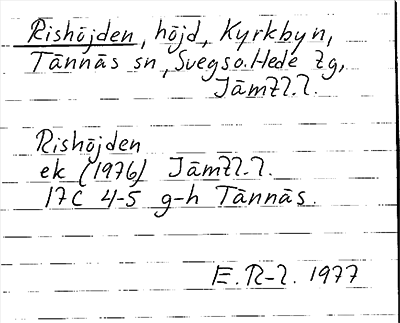 Rishöjden, höjd, Kyrkbyn,
Tännäs sn, Svegs o. Hede tg,
Jämtl. l.
Rishöjden
ek (1976) Jämtl. l.
17C 4-5 g-h Tännäs.
E. R-l. 1977